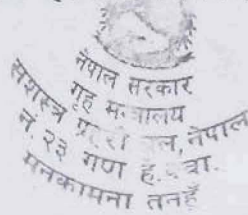 नेपाल सरकार
गृह मन्त्रालय
सशस्त्र प्रहरी बल, नेपाल
नं. २३ गण हे.क्वा.
मनकामना तनहुँ